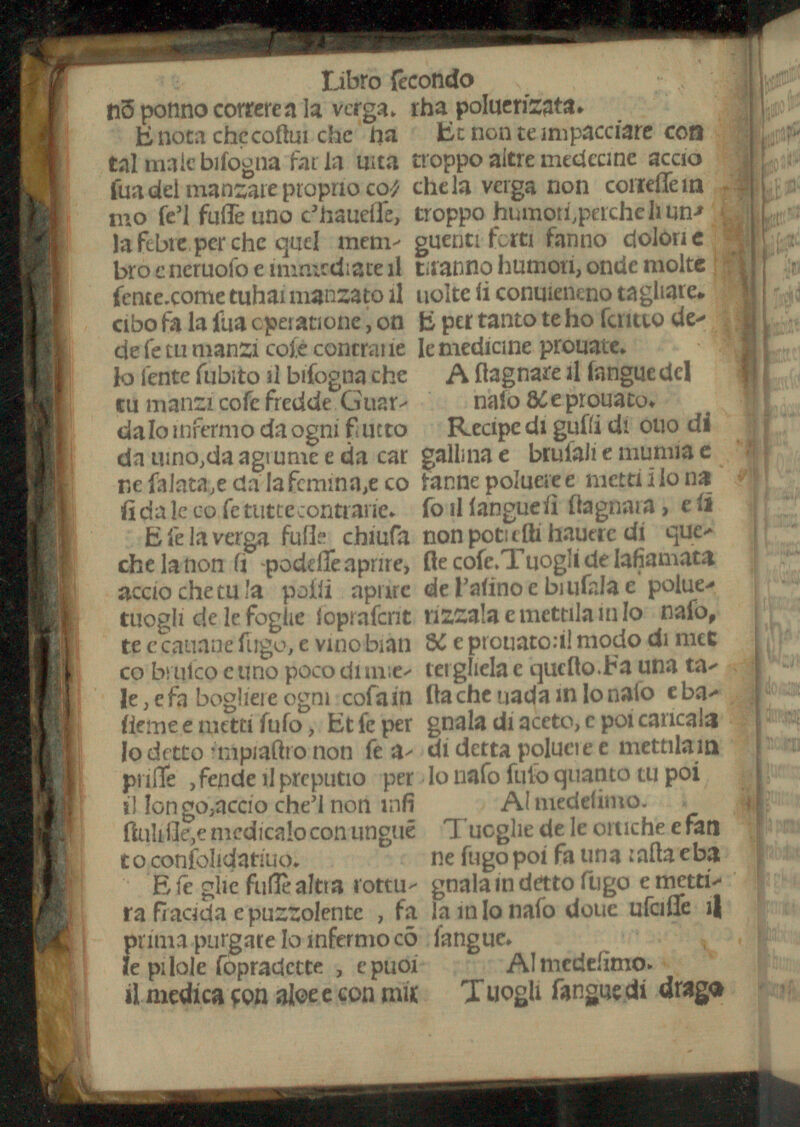 Libro ſecondo
nō ponno correre a la verga.
E nota che coſtui che ha
tal male biſogna far la uita
ſua del manzare proprio co⸗
mo ſe'l fuſſe uno c'haueſſe,
la febre. per che quel mem-
bro e neruoſo e immediate il
ſente. come tu hai manzato il
cibo fa la ſua operatione, on
de ſe tu manzi coſe contrarie
lo ſente ſubito il biſogna che
tu manzi coſe fredde. Guar-
da lo infermo da ogni frutto
da uino, da agrume e da car
ne ſalata, e da la femina, e co
ſi da le coſe tutte contrarie.
E ſe la verga fuſſe chiuſa
che la non ſi podeſſe aprire,
accio che tu la poſſi aprire
tuogli de le foglie ſopraſcrit
te e cauane ſugo, e vino bian
co bruſco e uno poco di mie-
le, e fa bogliere ogni coſa in
ſieme e metti ſuſo, Et ſe per
lo detto impiaſtro non ſe a-
priſſe, fende il preputio per
il longo, accio che'l non inſi
ſtuliſſe, e medicalo con unguē
to conſolidatiuo.
E ſe glie fuſſe altra rottu-
ra fracida e puzzolente, fa
prima purgare lo infermo cō
le pilole ſopradette, e puoi
il medica con aloe e con mir
rha poluerizata.
Et non te impacciare con
troppo altre medecine accio
che la verga non correſſe in
troppo humori, perche li un⸗
guenti forti fanno dolori e
tiranno humori, onde molte
uolte ſi conuieneno tagliare.
E per tanto te ho ſcritto de-
le medicine prouate.
A ſtagnare il ſangue del
naſo & e prouato.
Recipe di guſſi di ouo di
gallina e bruſali e mumia e
fanne poluere e metti i lo na
ſo il ſangue ſi ſtagnara, e ſi
non potreſti hauere di que-
ſte coſe. Tuogli de la fiamata
de l'aſino e bruſala e polue-
rizzala e mettila in lo naſo,
& e prouato: il modo di met
tergliela e queſto. Fa una ta-
ſta che uada in lo naſo e ba-
gnala di aceto, e poi caricala
di detta poluere e mettila in
lo naſo ſuſo quanto tu poi
Al medeſimo.
Tuoglie de le ortiche e fan
ne ſugo poi fa una taſta e ba
gnala in detto ſugo e metti-
la in lo naſo doue uſciſſe il
ſangue.
Al medeſimo.
Tuogli ſangue di drago